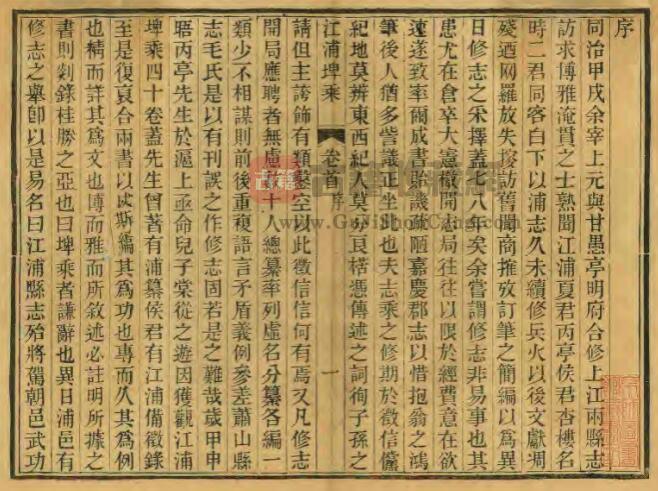 序
同治甲戌余宰上元與甘愚亭明府合修上江兩縣志
訪求博雅淹貫之士熟聞江浦夏君丙亭侯君杏樓名
時二君同客白下以浦志久未續修兵火以後文獻凋
殘迺网羅放失採訪舊聞商搉攷訂筆之簡編以爲異
日修志之宋擇蓋七八年矣余嘗謂修志非易事也其
患尤在倉卒大憲檄開志局往往以限於經費意在欲
速遂致率爾成書貽譏疏陋嘉慶郡志以惜抱翁之鴻
筆後人猶多訾議正坐此也夫志乘之修期於徵信儻
紀地莫辨東西紀人莫分亘楛憑傳述之詞徇子孫之
江浦埤乘
卷首 序
一
請但主誇飾有類鑿空以此徵信信何有焉又凡修志
開局應聘者無慮數十人總纂率列虛名分纂各編一
類少不相謀則前後重複語言矛盾義例參差蕭山縣
志毛氏是以有刊誤之作修志固若是之難哉歲甲申
晤丙亭先生於滬上亟命兒子棠從之遊因獲觀江浦
埤乘四十卷蓋先生曾著有浦纂侯君有江浦備徵錄
至是復裒合兩書以成斯編其爲功也專而久其爲例
也精而詳其爲文也博而雅而所敘述必註明所據之
書則剡錄桂勝之亞也曰埤乘者謙辭也異日浦邑有
修志之舉卽以是易名曰江浦縣志殆將駕朝邑武功
古籍
www.GuJiShuCang.Com